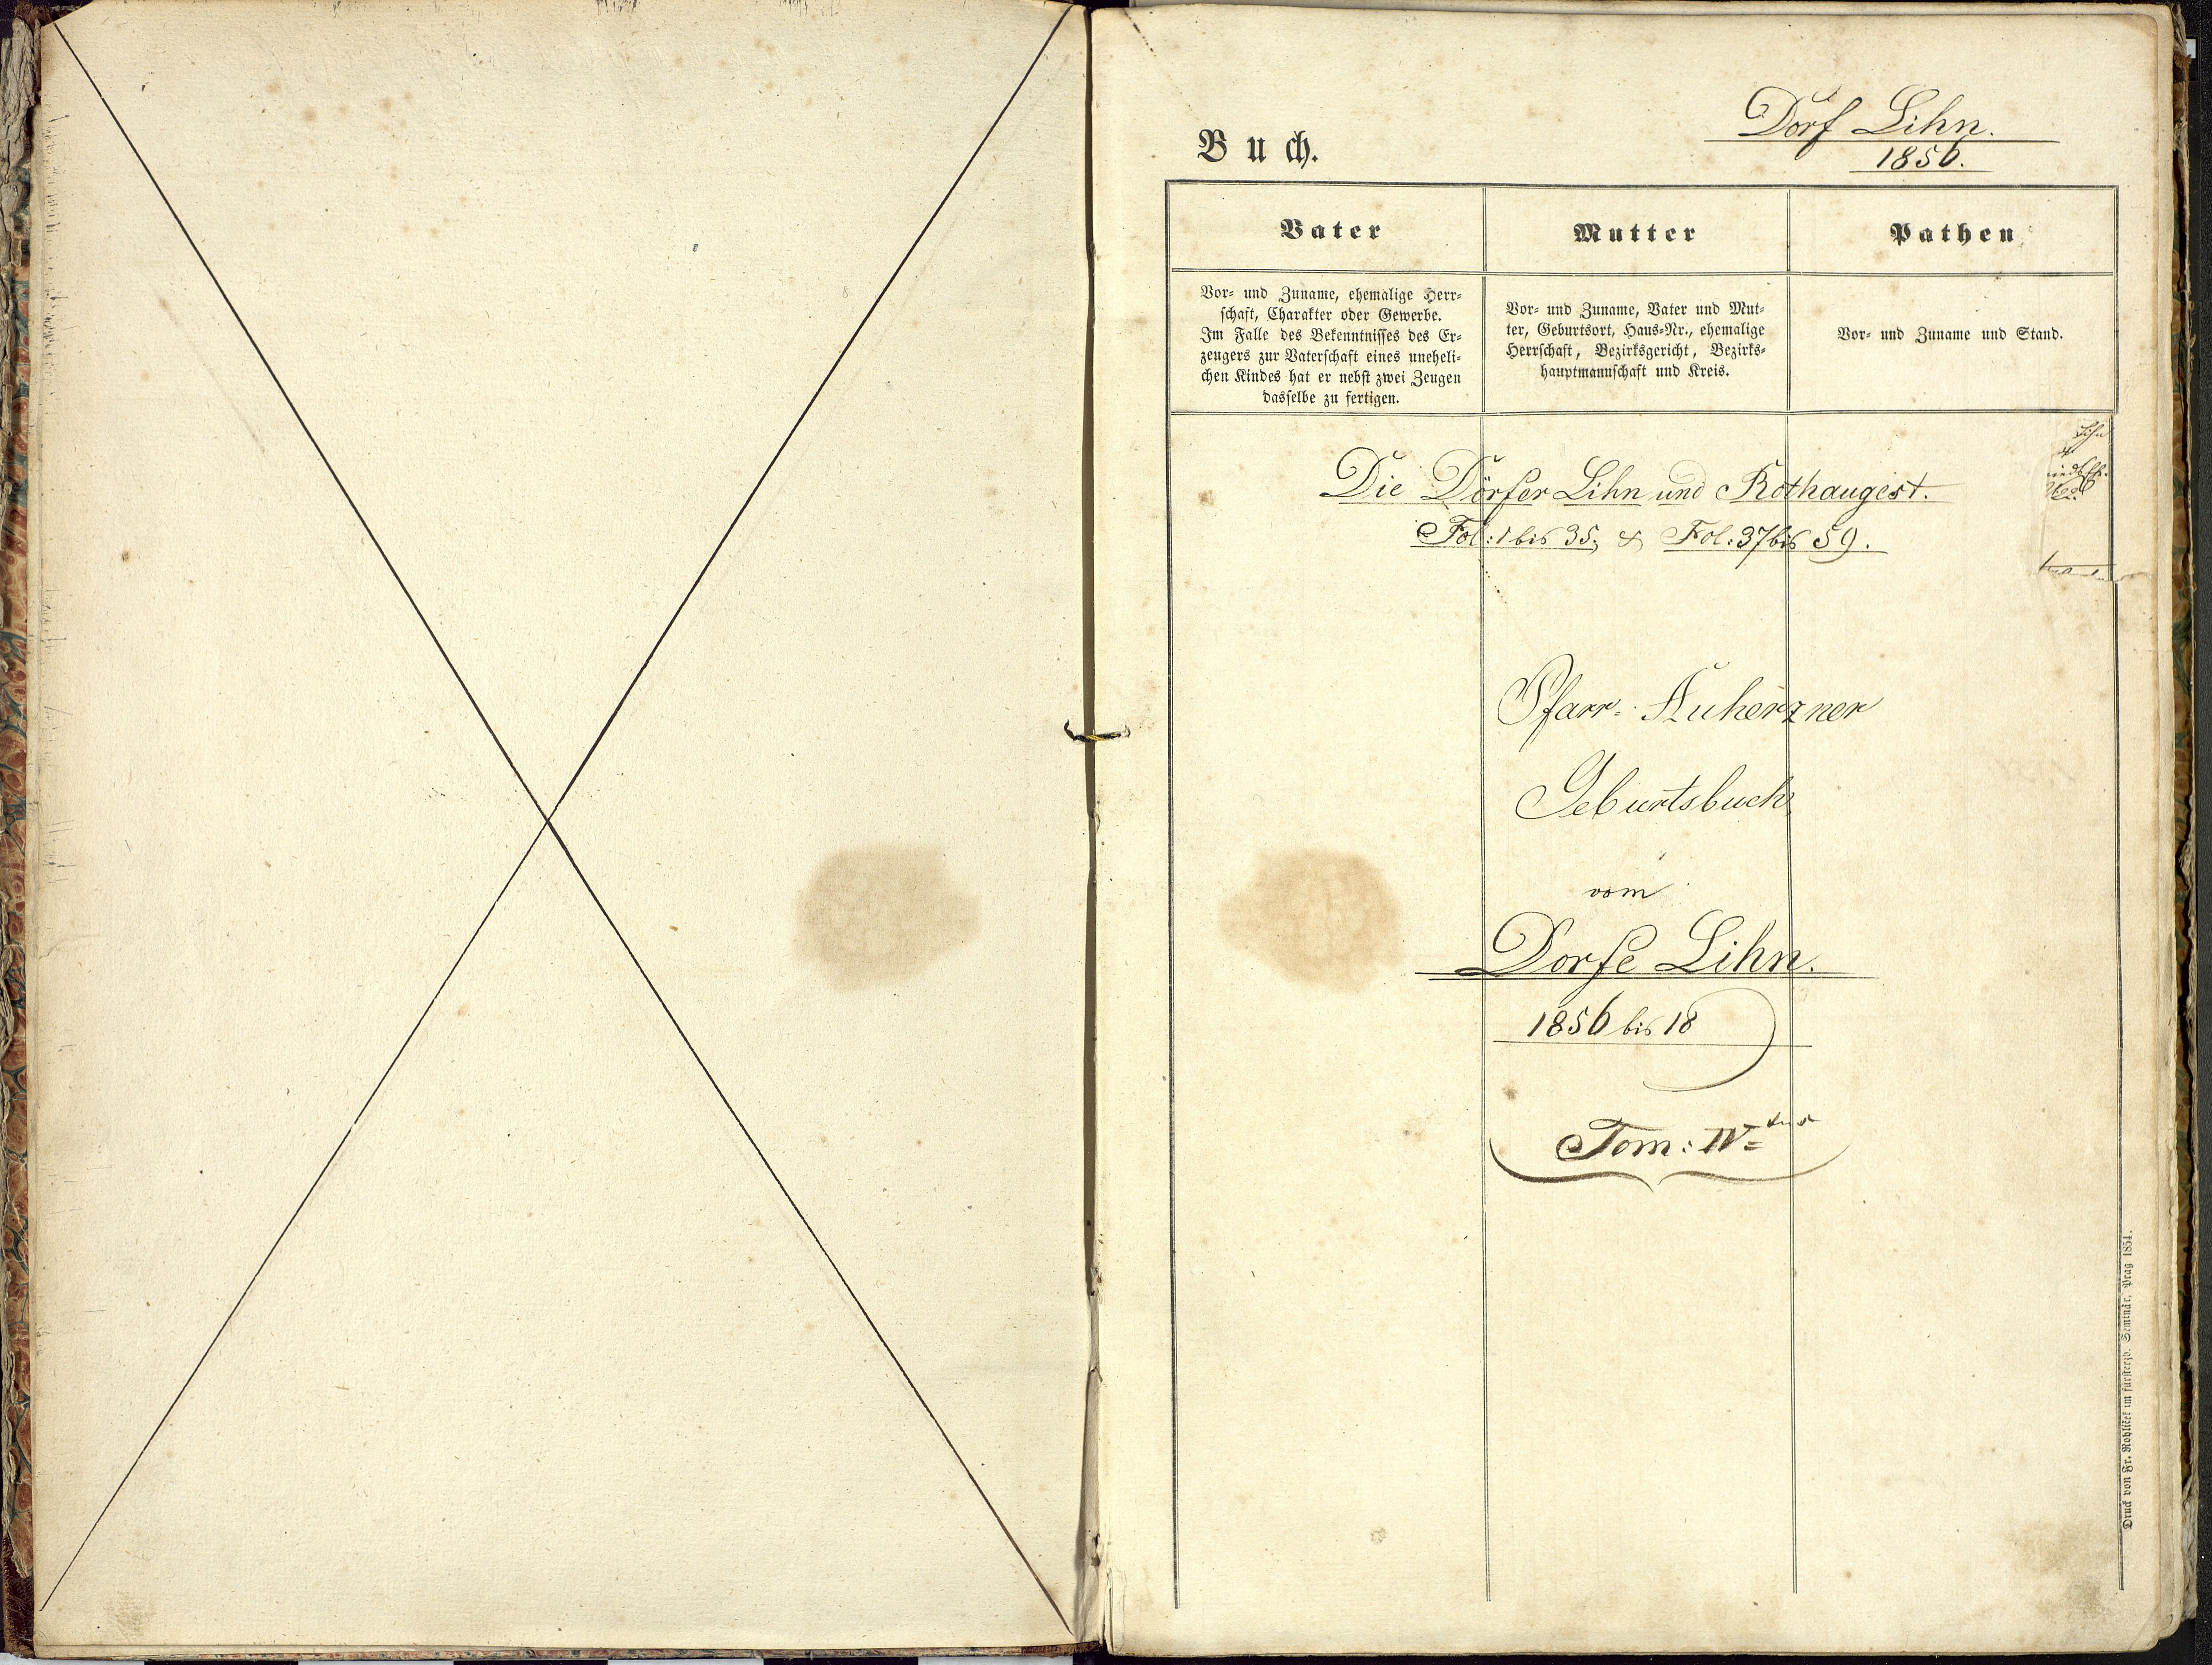 Dorf Lihn.
1856.
Buch.
Vater
Mutter
Pathen
Vor- und Zuname, ehemalige Herr-
schaft, Charakter oder Gewerbe.
Im Falle des Bekenntnisses des Er-
zeugers zur Vaterschaft eines uneheli-
chen Kindes hat er nebst zwei Zeugen
dasselbe zu fertigen.
Vor- und Zuname, Vater und Mut-
ter, Geburtsort, Haus-Nr., ehemalige
Herrschaft, Bezirksgericht, Bezirks-
hauptmannschaft und Kreis.
Vor- und Zuname und Stand.
Lihn
Die Dörfer Lihn und Rothaugest.
Fol: 1 bis 35; & Fol: 37 bis 59.
Pfarr- Auherzner
Geburtsbuch
vom
Dorfe Lihn.
1856 bis 18
Tom: IV tus
Druck von Fr. Rohliček im fürsterzb. Seminär, Prag 1854.